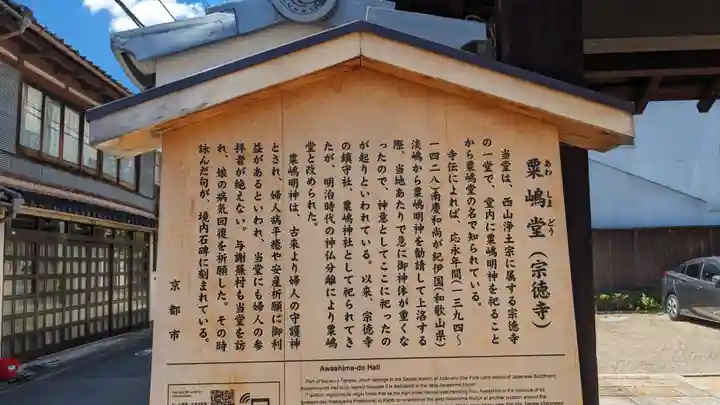 粟嶋堂(宗徳寺)
あわ しま どう
当堂は、西山浄土宗に属する宗徳寺
の一堂で、堂内に粟嶋明神を祀ること
から粟嶋堂の名で知られている。
寺伝によれば、応永年間(一三九四〜
一四二八)南慶和尚が紀伊国(和歌山県)
淡嶋から粟嶋明神を勧請して上洛する
際、当地あたりで急に御神体が重くな
ったので、神意としてここに祀ったの
が起りといわれている。以来、宗徳寺
の鎮守社、粟嶋神社として祀られてき
たが、明治時代の神仏分離により粟嶋
堂と改められた。
粟嶋明神は、古来より婦人の守護神
とされ、婦人病平癒や安産祈願に御利
益があるといわれ、当堂にも婦人の参
拝者が絶えない。与謝蕪村も当堂を訪
れ、娘の病気回復を祈願した。その時
詠んだ句が、境内石碑に刻まれている。
京都市
Awashima-do Hall